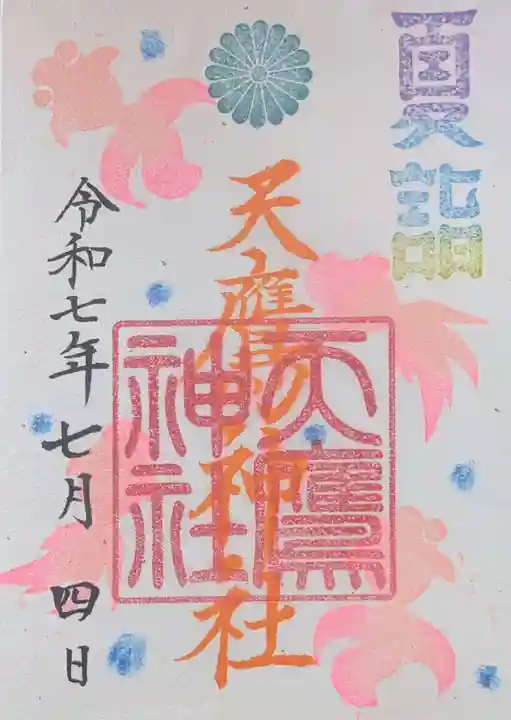 夏詣
天鷹神社
天鷹神社
令和七年 七月 四日